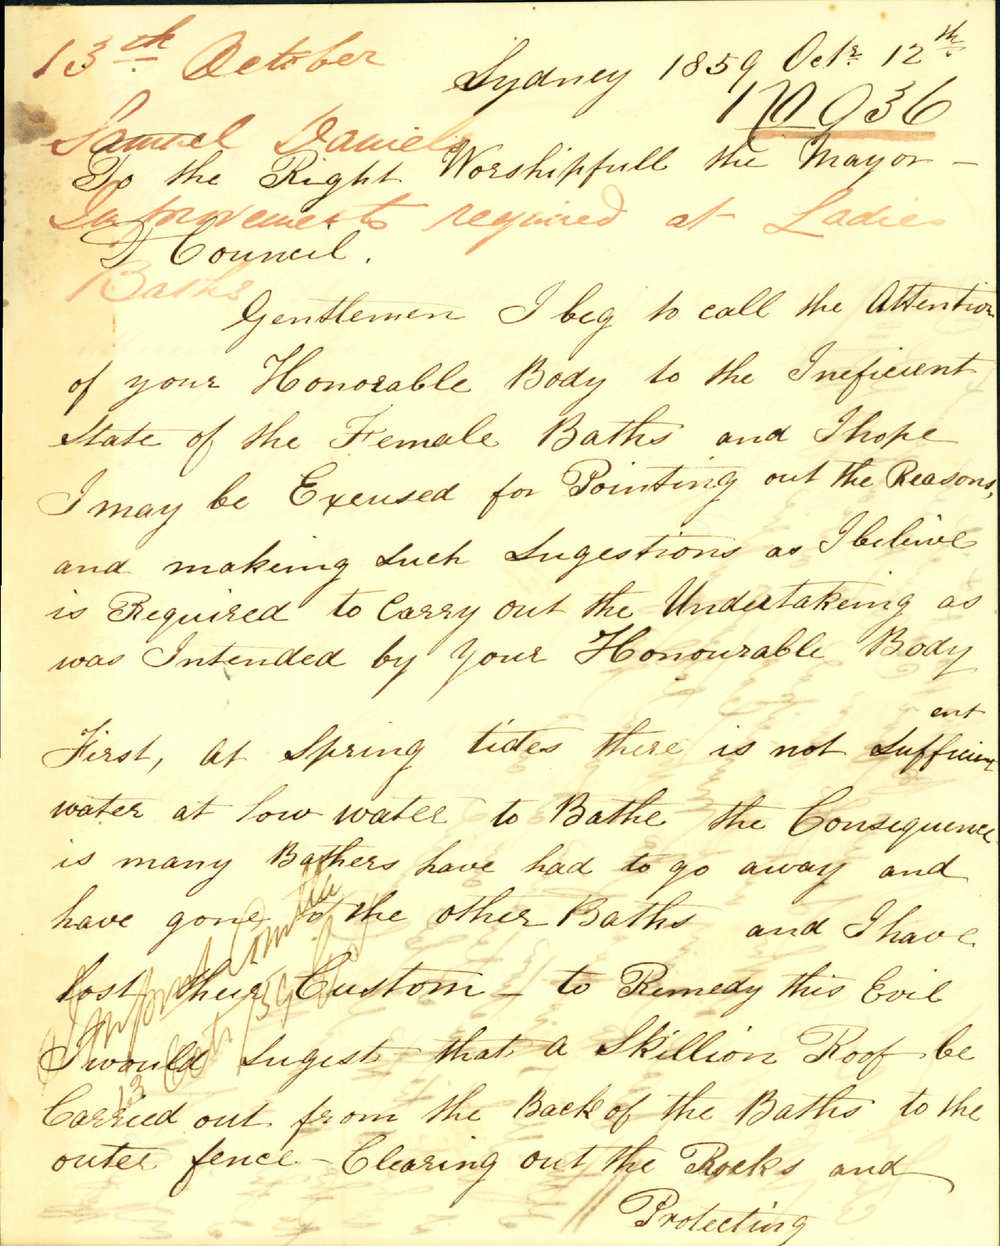 13th October
Sydney 1859 Octr. 12th
936
Samuel Daniels
To the Right Worshipfull the Mayor -
Improvements required at Ladies
& Council.
Baths
Gentlemen I beg to call the Attention
of your Honorable Body to the Ineficient
State of the Female Baths and I hope
I may be Excused for Pointing out the Reasons,
and makeing such sugestions as I beleive
is Required to Carry out the Undertakeing as
was Intended by Your Honourable Body
ent
First, at Spring tides there is not Sufficien
water at low water to Bathe the Consequence
is many Bathers have had to go away and
have gone to the other Baths and I have
lost their Custom - to Remedy this Evil
Improvement Committee
13 Octr /59
I would sugest that a Skillion Roof be
Carried out from the Back of the Baths to the
outer fence - Clearing out the Rocks and
Protecting